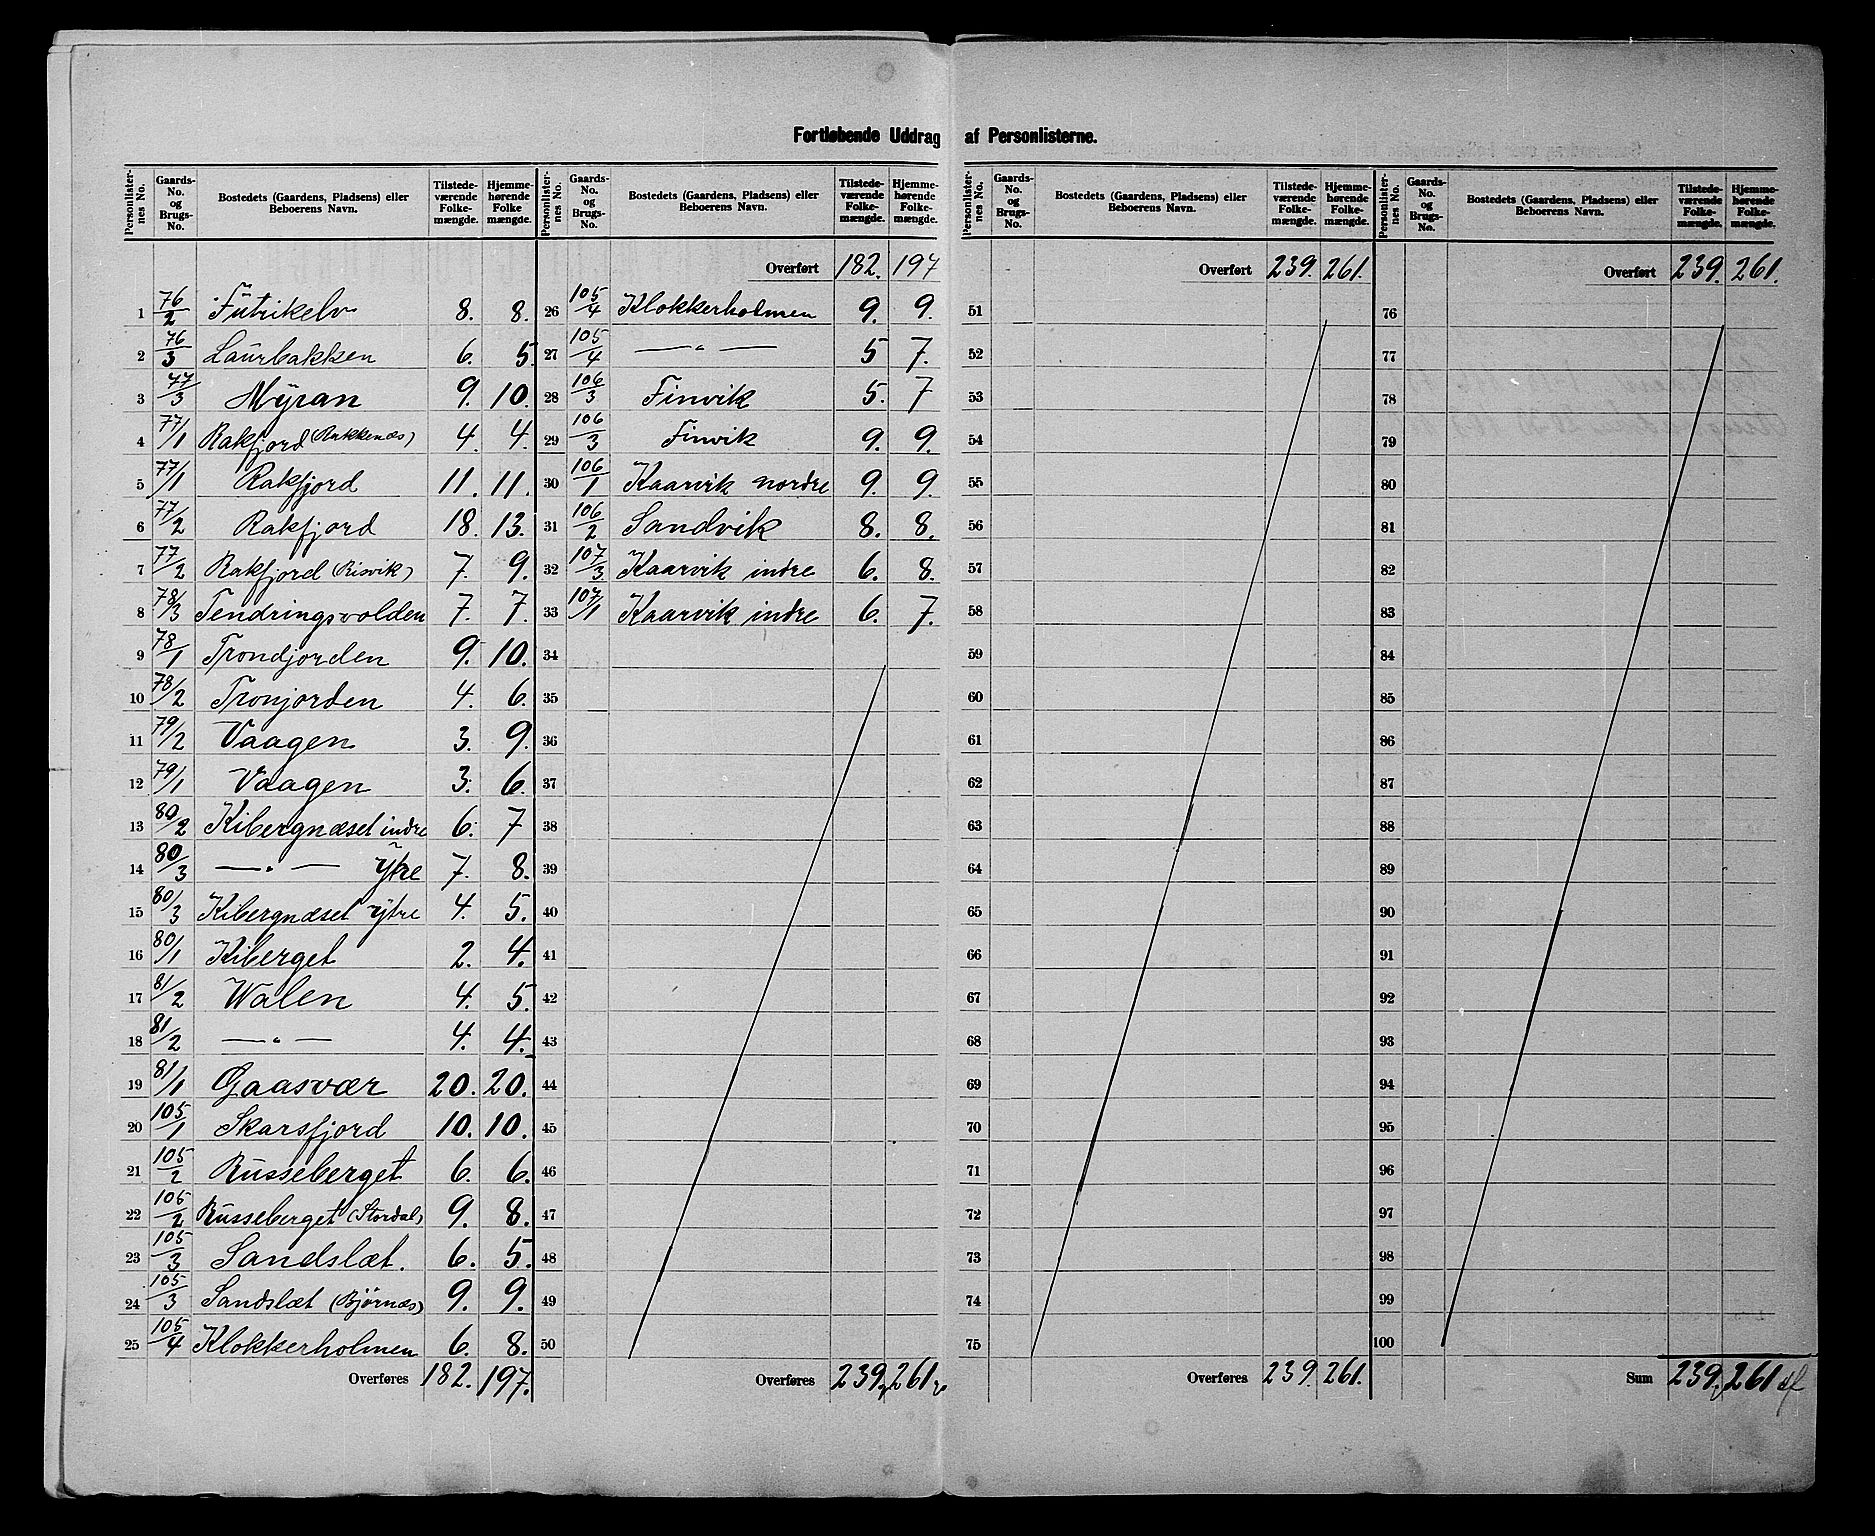 Fortløbende Uddrag af Personlisterne.
Personlister-nes No. | Gaards-No. og Brugs-No. | Bostedets (Gaardens, Pladsens) eller Beboerens Navn. | Tilstede-værende Folke-mængde. | Hjemme-hørende Folke mængde.
1 76/2 Futrikelv 8. 8.
2 76/3 Laurbakken 6. 5
3 77/3 Myran 9. 10.
4 77/1 Rakfjord (Rakkenæs) 4. 4.
5 77/1 Rakfjord 11. 11.
6 77/2 Rakfjord 18. 13.
7 77/2 Rakfjord (Risvik) 7. 9.
8 78/3 Tendringsvolden 7. 7.
9 78/1 Trondjorden 9. 10.
10 78/2 Tronjorden 4. 6.
11 79/2 Vaagen 3. 9.
12 79/1 Vaagen 3. 6.
13 80/2 Kibergnæset indre 6. 7
14 80/3 — " — Ytre 7. 8.
15 80/3 Kibergnæset ytre 4. 5.
16 80/1 Kiberget 2. 4.
17 81/2 Walen 4. 5.
18 81/2 — " — 4. 4.
19 81/1 Gaasvær 20. 20.
20 105/1 Skarsfjord 10. 10.
21 105/2 Russeberget 6. 6.
22 105/2 Russeberget (Stordal) 9. 8.
23 105/3 Sandslæt. 6. 5.
24 105/3 Sandslæt (Bjørnæs) 9. 9.
25 105/4 Klokkerholmen 6. 8.
Overføres 182. 197.
Personlister-nes No. | Gaards-No. og Brugs-No. | Bostedets (Gaardens, Pladsens) eller Beboerens Navn. | Tilstede-værende Folke-mængde. | Hjemme-hørende Folke-mængde.
Overført 182. 197
26 105/4 Klokkerholmen 9. 9.
27 105/4 — " — 5 7.
28 106/3 Finvik 5. 7
29 106/3 Finvik 9. 9.
30 106/1 Kaarvik nordre 9. 9.
31 106/2 Sandvik 8. 8.
32 107/3 Kaarvik indre 6. 8.
33 107/1 Kaarvik indre 6. 7.
34
35
36
37
38
39
40
41
42
43
44
45
46
47
48
49
50
Overføres 239. 261
Personlister-nes No. | Gaards-No. og Brugs-No. | Bostedets (Gaardens, Pladsens) eller Beboerens Navn. | Tilstede-værende Folke-mængde. | Hjemme-hørende Folke-mængde.
Overført 239. 261.
51
52
53
54
55
56
57
58
59
60
61
62
63
64
65
66
67
68
69
70
71
72
73
74
75
Overføres 239. 261.
Personlister-nes No. | Gaards-No. og Brugs-No. | Bostedets (Gaardens, Pladsens) eller Beboerens Navn. | Tilstede-værende Folke-mængde. | Hjemme-hørende Folke-mængde.
Overført 239. 261.
76
77
78
79
80
81
82
83
84
85
86
87
88
89
90
91
92
93
94
95
96
97
98
99
100
Sum 239. 261